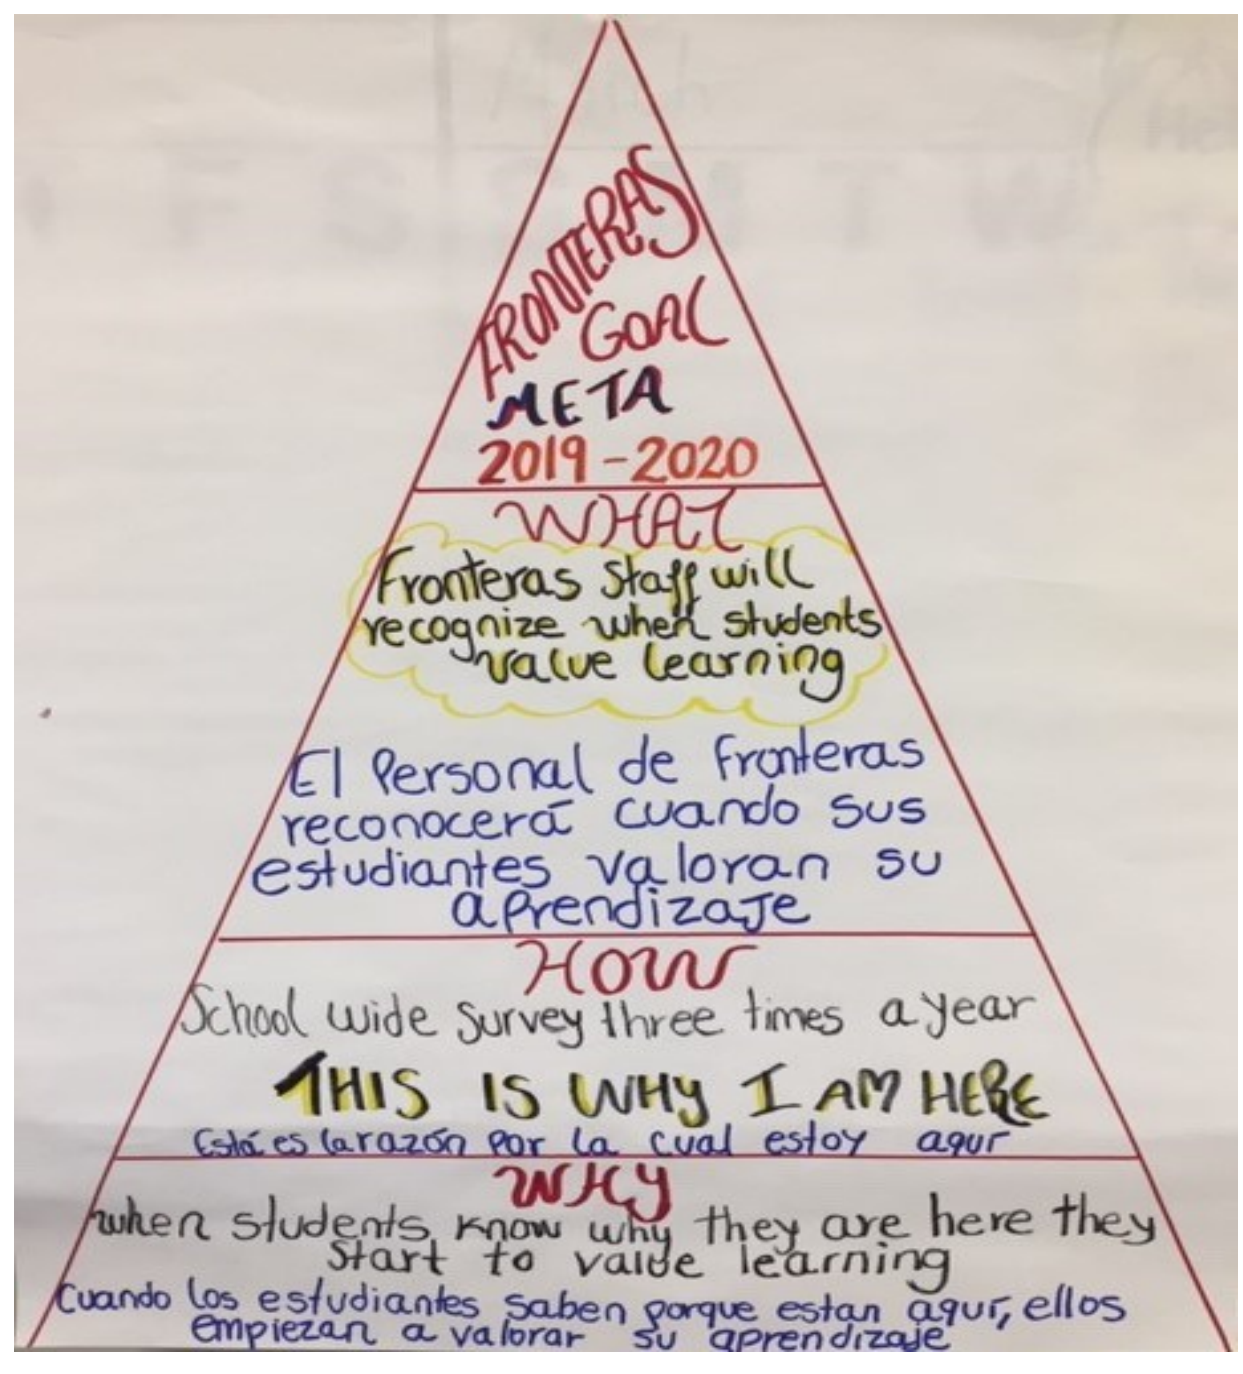 FRONTERAS
GOAL
META
2019-2020
WHAT
Fronteras Staff will
recognize when students
value learning
El Personal de Fronteras
reconocerá cuando sus
estudiantes valoran su
aprendizaje
HOW
School wide survey three times a year
THIS IS WHY I AM HERE
Está es la razón por la cual estoy aquí
WHY
when students know why they are here they
start to value learning
Cuando los estudiantes saben porque estan aquí, ellos
empiezan a valorar su aprendizaje